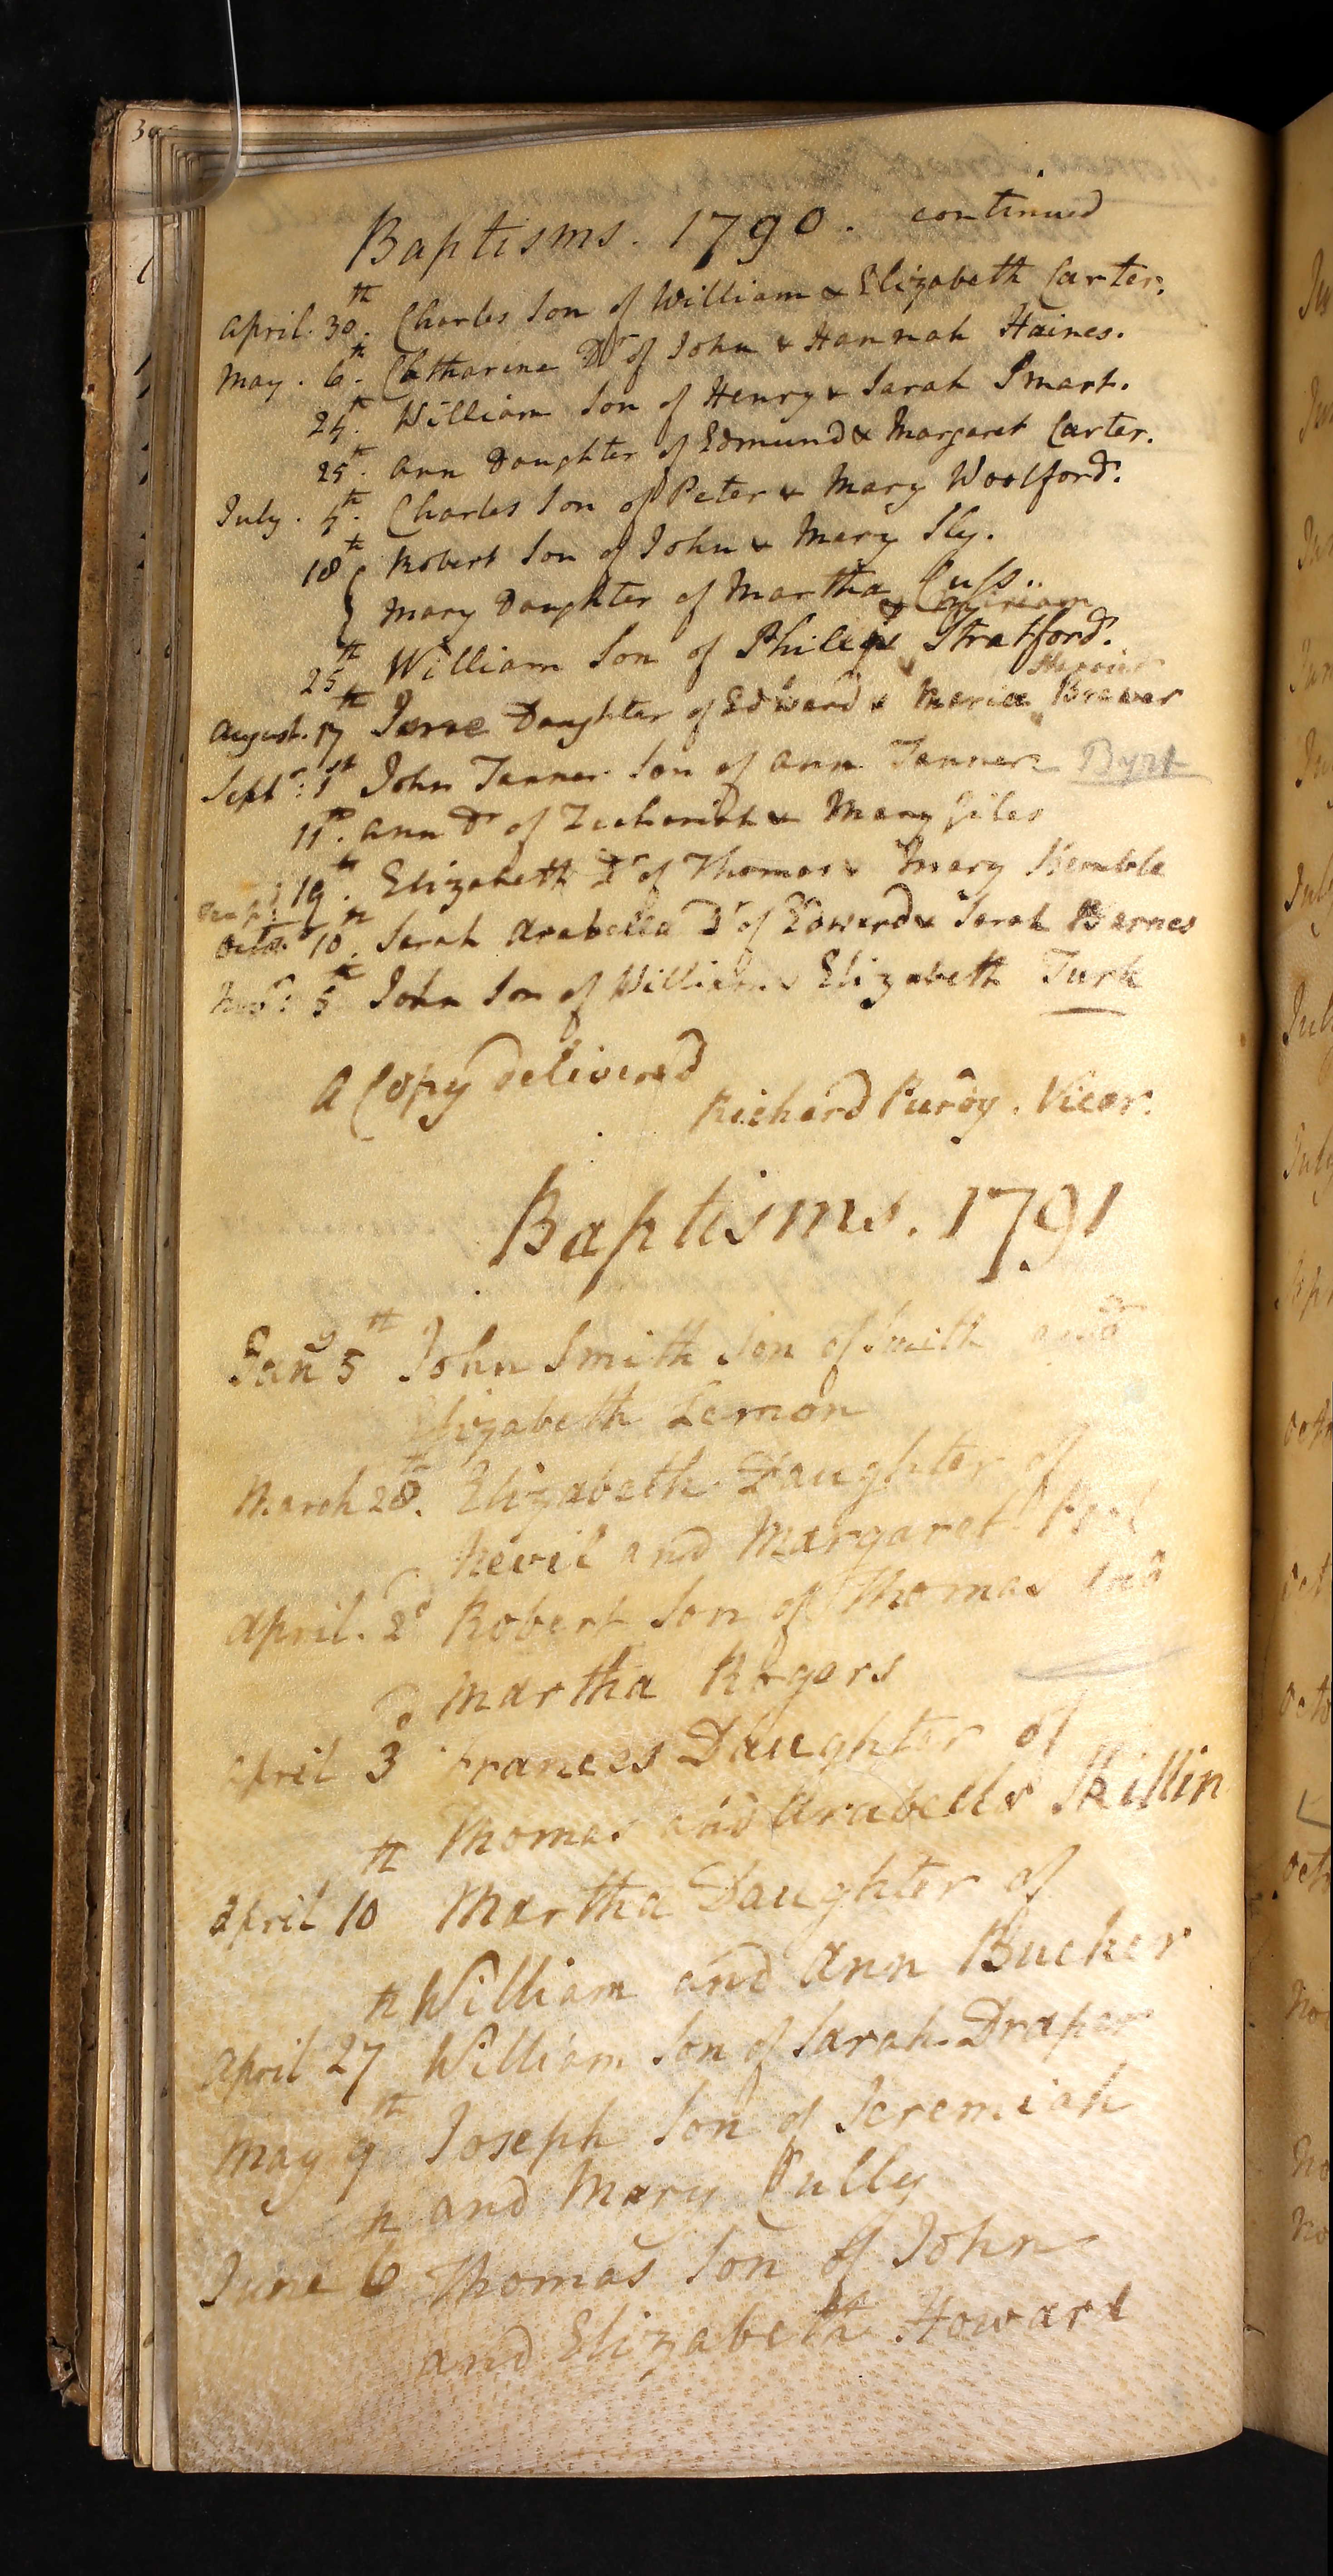 Baptisms. 1790. continued
April. 30th. Charles Son of William & Elizabeth Carter.
May. 6th. Catharine Dr of John & Hannah Haines.
24th. William Son of Henry & Sarah Smart.
25th. Ann Daughter of Edmund & Margaret Carter.
July. 4th. Charles Son of Peter & Mary Woolford.
18th Robert Son of John & Mary Sly.
Mary Daughter of Martha Cuss..
& Miriam
25th William Son of Philip Stratford.
August. 17th Daughter of Edward & Maria Brewer
Septr: 1st John Tanner Son of Ann Tanner Byrt
11th. Ann Dr of Zechariah & Mary Giles
19th. Elizabeth Dr of Thomas & Mary Kemble
Octr 10th. Sarah Arabella Dr of Edward & Sarah Barnes
Novr: 5th John Son of William & Elizabeth Turk
A Copy delivered
Richard Purdy. Vicar.
Baptisms. 1791
Jany 5th John Smith Son of Smith and
Elizabeth Lemon
March 28th. Elizabeth Daughter of
Nevil and Margaret
April. 2d Robert Son of Thomas and
Martha Rogers
April 3d Frances Daughter of
Thomas and Arabella Skillin
April 10th Martha Daughter of
William and Ann Bucker
April 27th William Son of Sarah Draper
May 9th Joseph Son of Jeremiah
and Mary Cully
June 6th Thomas Son of John
and Elizabeth Howard